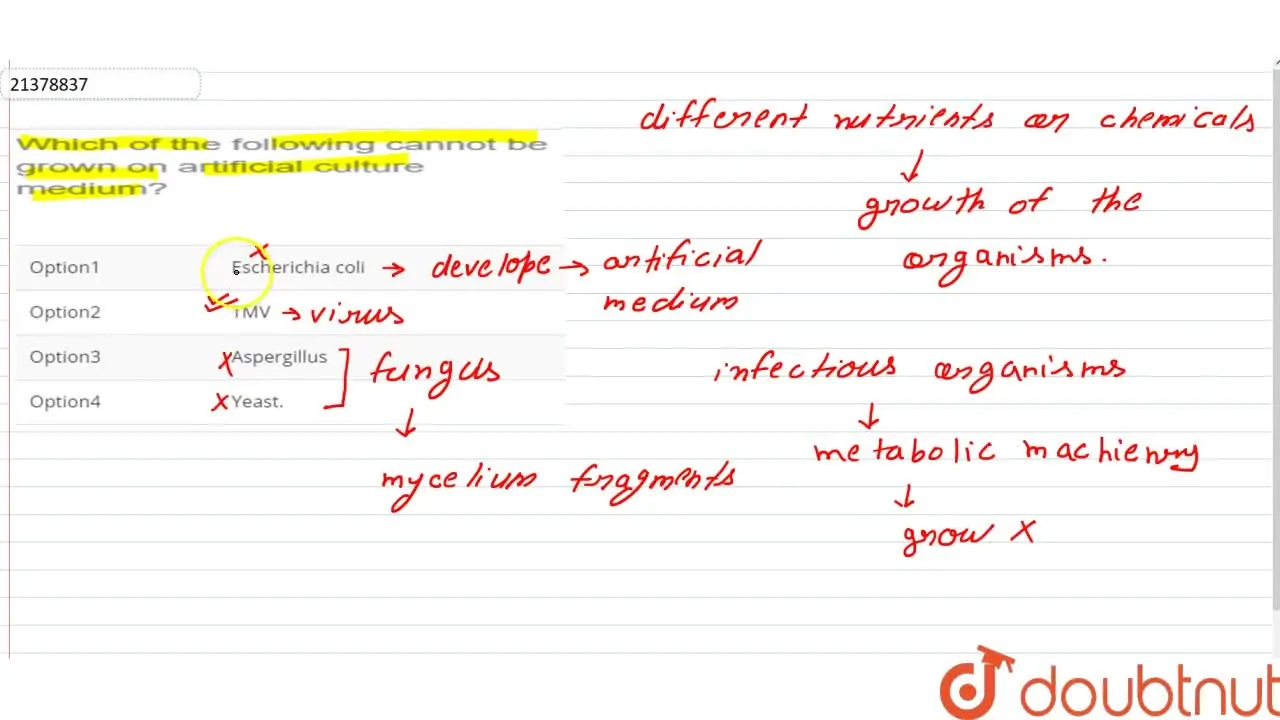 21378837
Which of the following cannot be
grown on artificial culture
medium?
Option1 Escherichia coli → develope → artificial
medium
Option2 TMV → virus
Option3 Aspergillus
Option4 Yeast.
fungus
mycelium fragments
different nutrients or chemicals
growth of the
organisms.
infectious organisms
metabolic machienry
grow x
doubtnut